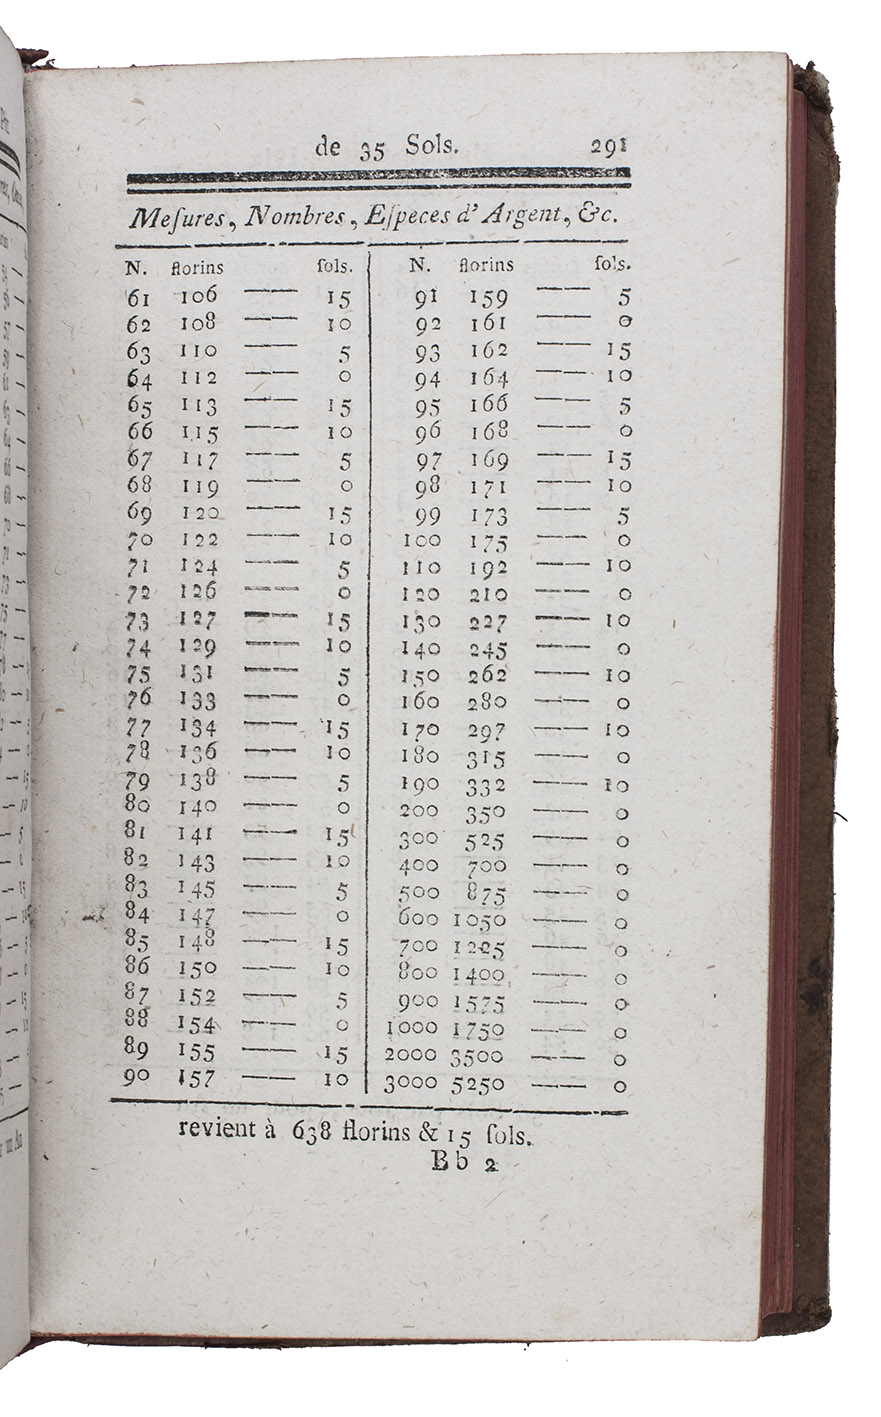 de 35 Sols. 291
Meſures, Nombres, Eſpeces d'Argent, &c.
N. florins ſols. N. florins ſols.
61 106 —— 15 91 159 —— 5
62 108 —— 10 92 161 —— 0
63 110 —— 5 93 162 —— 15
64 112 —— 0 94 164 —— 10
65 113 —— 15 95 166 —— 5
66 115 —— 10 96 168 —— 0
67 117 —— 5 97 169 —— 15
68 119 —— 0 98 171 —— 10
69 120 —— 15 99 173 —— 5
70 122 —— 10 100 175 —— 0
71 124 —— 5 110 192 —— 10
72 126 —— 0 120 210 —— 0
73 127 —— 15 130 227 —— 10
74 129 —— 10 140 245 —— 0
75 131 —— 5 150 262 —— 10
76 133 —— 0 160 280 —— 0
77 134 —— 15 170 297 —— 10
78 136 —— 10 180 315 —— 0
79 138 —— 5 190 332 —— 10
80 140 —— 0 200 350 —— 0
81 141 —— 15 300 525 —— 0
82 143 —— 10 400 700 —— 0
83 145 —— 5 500 875 —— 0
84 147 —— 0 600 1050 —— 0
85 148 —— 15 700 1225 —— 0
86 150 —— 10 800 1400 —— 0
87 152 —— 5 900 1575 —— 0
88 154 —— 0 1000 1750 —— 0
89 155 —— 15 2000 3500 —— 0
90 157 —— 10 3000 5250 —— 0
revient à 638 florins & 15 ſols.
Bb 2